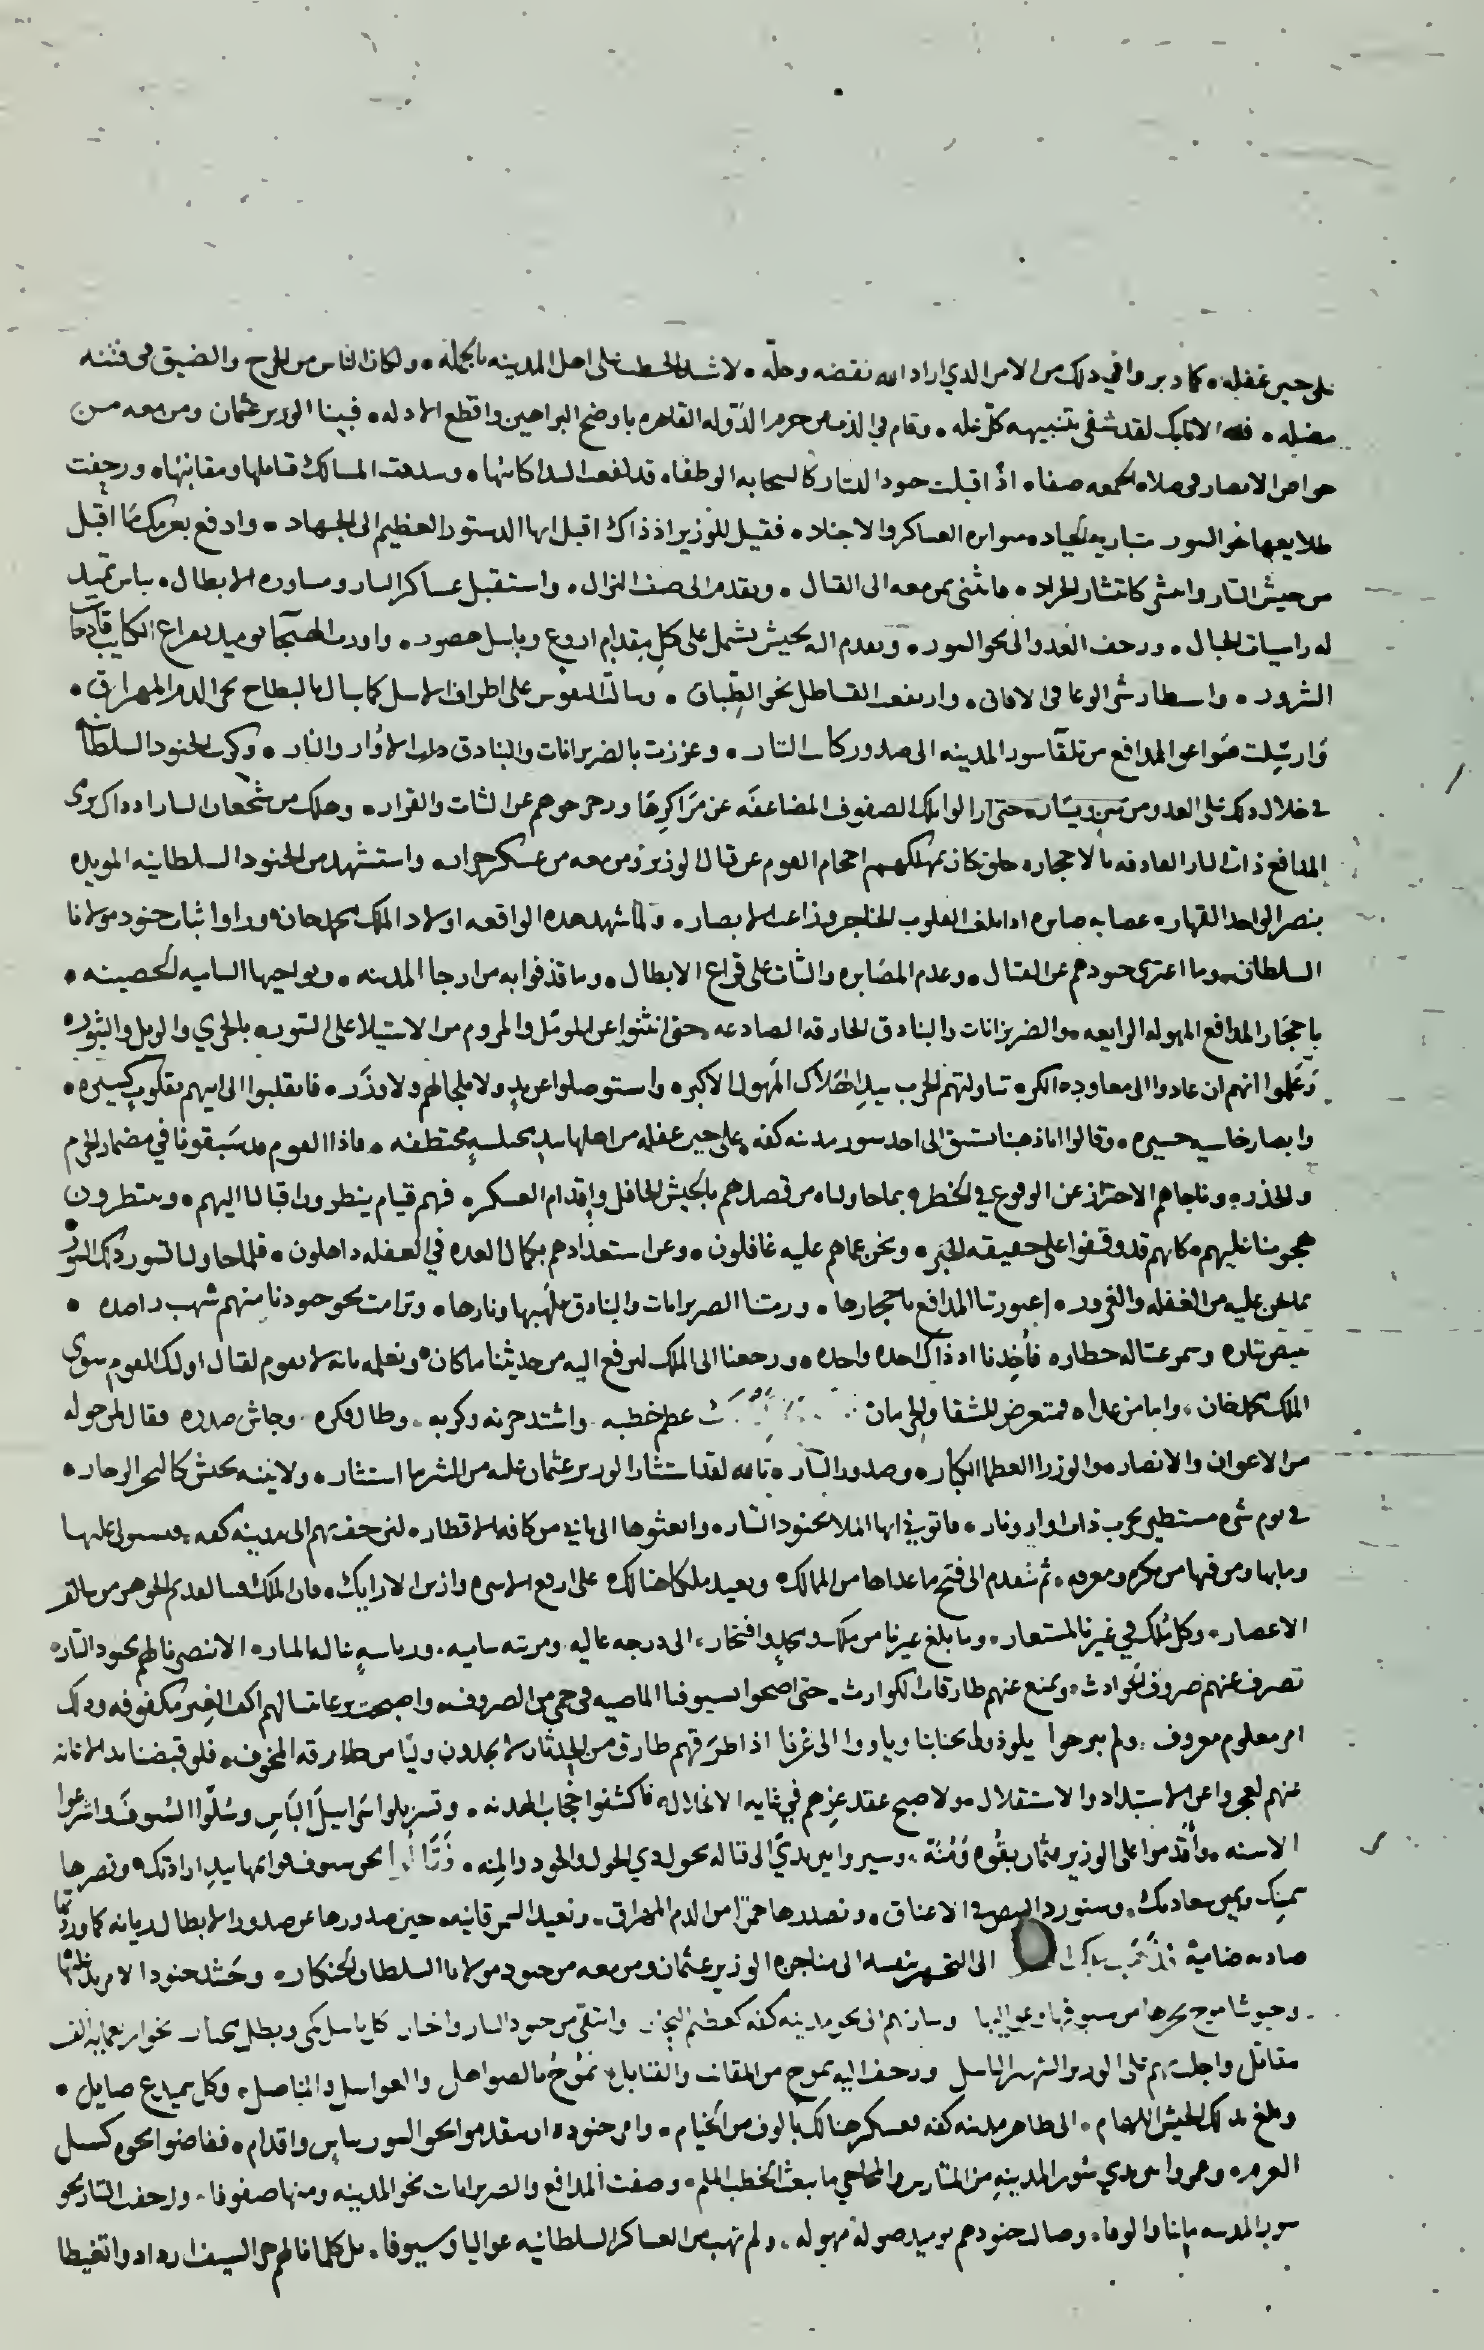 على حين غفلة • كما دبروا في ذلك من الامر الذي اراد الله نقضه وحله • لاشتد الخطب على اهل المدينه بالجمله • ولكان الناس من الحرج والضيق في فتنه
مضله • الاتابك لقد شفى بتنبيهه كل غله • وقام في الذب عن حرم الدوله القاهره باوضح البراهين واقطع الادله • فبينا الوزير عثمان ومن معه من
خواص الانصار في صلاه الجمعه صفا • اذ اقبلت جنود التتار كالسحابه الوطفا • وسدت المسالك قنابلها ومقانبها • ورجفت
طلايعها نحو السور العساكر والاجناد • فقيل للوزير اذ ذاك اقبل ايها الدستور العظيم الى الجهاد • وادفع بعزمك ما اقبل
من جيش التتار وانتشر كانتشار الجراد • فانثنى بمن معه الى القتال • وتقدم الى صف النزال • واستقبل عساكر التتار ومساوره الابطال • بباس تميد
له راسيات الجبال • وزحف العدو الى نحو السور • وتقدم اليه بجيش يشتمل على كل مقدام اروع وباسل هصور •
الشرور • واستطار شرر الوغا في الافاق • وارتفعت القساطل نحو الطباق • وسالت النفوس على اطراف الاسل كما سالت البطاح بحر الدم المهراق •
وارسلت صواعق المدافع من تلقا سور المدينه الى صدور كتايب التتار • وعززت بالضربزانات والبنادق ذات الاوار والنار • وكرت الجنود السلطانيه
في خلال ذلك على العدو من يمين ويسار • حتى ازالوا تلك الصفوف المضاعفه عن مراكزها وزحزحوهم عن الثبات والقرار • وهلك من شجعان التتار اذ ذاك برمي
المدافع ذات النار القاذفه بالاحجار • خلق كان بهلكهم احجام القوم عن قتال الوزير ومن معه من عسكر جرار • واستشهد من الجنود السلطانيه المويده
بنصر الواحد القهار • عصابه صابره اذا بلغت القلوب الحناجر وزاغت الابصار • ولما شهد هذه الواقعه اولاد الملك محمد خان وراوا ثبات جنود مولانا
السلطان • وما اعترى جنودهم عن القتال • وعدم المصابره والثبات على قراع الابطال • وما قذفوا به من ارجا المدينه • ونواحيها الساميه الحصينه •
باحجار المدافع المهوله الرايعه • والضربزانات والبنادق الحارقه الصادعه • حتى انثنوا عن المومل والمروم من الاستيلا على السور • بالخزي والويل والثبور •
وعلموا انهم ان عادوا الى معاوده الكر • تناولتهم الحرب بيد الهلاك المهول الاكبر • واستوصلوا عن يد ولا ملجا لهم ولا وزر • فانقلبوا الى ابيهم بقلوب كسيره •
وابصار خاسيه حسيره • وقالوا انا ذهبنا نستبق الى اخذ سور مدينه كفه على حين غفله من اهلها بيد مختلسه مختطفه • فاذا القوم قد سبقونا في مضمار الحزم
والحذر • وناجاهم الاحتراز عن الوقوع في الخطر • بما حاولناه من قصدهم بالجيش الحافل واقدام العسكر • فهم قيام ينظرون اقبالنا اليهم • وينتظرون
هجومنا عليهم • كانهم قد وقفوا على حقيقه الخبر • ونحن عما هم عليه غافلون • وعن استعدادهم بكمال العده في الغفله ذاهلون • فلما حاولنا تسور ذلك السور
بما نحن عليه من الغفله والغرور • اعتورتنا المدافع باحجارها • ورمتنا الضربزانات والبنادق بلهبها ونارها • وترامت نحو جنودنا منهم شهب راصده •
ببيض بتاره وسمر عساله خطاره فأخذنا اذ ذاك اخذه واحده • ورجعنا الى الملك لنرفع اليه من حديثنا ما كان • ونعلمه بانه لا يقوم لقتال اولئك القوم سوى
الملك محمد خان • واما من عداه فمتعرض للشقا والحرمان عظم خطبه • واشتد حزنه وكربه • وطال فكره • وجاش صدره • فقال لمن حوله
من الاعوان والانصار • والوزرا العظما الكبار • وصدور التتار • تالله لقد استثار الوزير عثمان عليه من الشر ما استثار • ولاتينه بجيش كالبحر الزخار •
في يوم شره مستطير بحرب ذات اوار ونار • فاتوني ايها الملا بجنود التتار • وابعثوها الى بابي من كافه الاقطار • لنزحف بهم الى مدينه كفه • فنستولي عليها
وما بها ومن فيها من مكرم ومعرفه • ثم نتقدم الى فتح ما عداها من الممالك • ونعيد ملكا هنالك • على ارفع الاسره وازين الارايك • فان الملك فينا لقديم الجوهر من سالف
الاعصار • وكل ملك في غيرنا لمستعار • وما بلغ غيرنا من ملك ومجد وافتخار • الى درجه عاليه • ومرتبه ساميه • ورياسه عاليه المنار • الا بنصرنا لهم بجنود التتار •
تصرف عنهم صروف الحوادث • وتمنع عنهم طارقات الكوارث • حتى اصبحوا بسيوفنا الماضيه في حمى من الصروف • واصبحت برعايتنا لهم اكف الغير مكفوفه وذلك
امر معلوم معروف • ولم يبرحوا يلوذون بجنابنا وياووا الى عزنا اذا طرقهم طارق من الحدثان لا يجدون وليا من طارقه المخوف • فلو قبضنا يد الاعانه
عنهم لعجزوا عن الاستبداد والاستقلال • ولاصبح عقد عزهم في نهايه الانحلال • فاكشفوا حجاب الهدنه • وتسربلوا سرابيل الباس وسلوا السيوف واشرعوا
الاسنه • واقدموا على الوزير عثمان بقوه ومنه • وسيروا بين يدي الى قتاله بحول ذي الحول والجود والمنه • نحن سيوف قوايمها بيد ارادتك • ونصرها
بيمنك ويمن سعادتك • وسنورد البيض في الاعناق • ونصدرها حمرا من الدم المهراق • ونعيد السمر قانيه • حين صدورها عن صدور الابطال ريانه كما وردتها
صاديه ضاميه الى التجهز بنفسه الى مناجزه الوزير عثمان ومن معه من جنود مولانا السلطان الخنكار • وحشد جنودا
وجيوشا يموج بحرها من سيوفها وعواليها وسار بهم الى نحو مدينه كفه وانتقى من جنود التتار واختار كل باسل كمي وبطل مختار نحو اربعمايه الف
مقاتل واجلب بهم على الوزير الشهير الباسل وزحف اليه بموج من المقانب والقنابل تموج بالصواهل والعواسل والمناصل • وكل سميدع صايل •
وبلغ بذلك الجيش اللهام • الى ظاهر مدينه كفه فعسكر هنالك بالوف من الخيام • وامر جنوده ان يتقدموا نحو السور بباس واقدام • ففاضوا نحوه كسيل
العرم • وعبروا بين يدي سور المدينه من المتارس والمحاجي ما يبعث الخطب الملم • وصفت المدافع والضربزانات نحو المدينه ومنها صفوفا • وازحف التتار نحو
سور المدينه مايتا والوفا • وصالت جنودهم يوميذ صوله مهوله • ولم تهب من العساكر السلطانيه عواليا وسيوفا • بل كلما نالهم حر السيف ازدادوا تغيظا